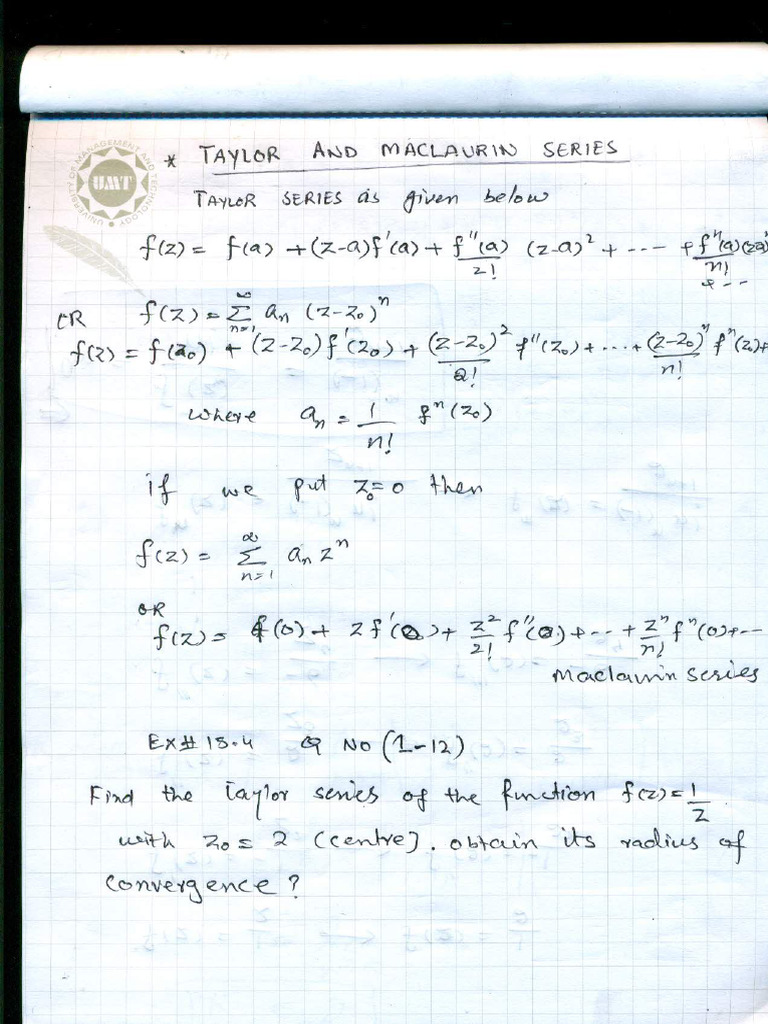 UNIVERSITY OF MANAGEMENT AND TECHNOLOGY
UMT
* TAYLOR AND MACLAURIN SERIES
TAYLOR SERIES as given below
f(z) = f(a) + (z-a)f'(a) + f''(a)/2! (z-a)² + --- + fⁿ(a)(za)ⁿ/n! + ---
OR f(z) = Σ_{n=1}^{∞} aₙ (z-z₀)ⁿ
f(z) = f(z₀) + (z-z₀)f'(z₀) + (z-z₀)²/2! f''(z₀) + ... + (z-z₀)ⁿ/n! fⁿ(z₀)+
where aₙ = 1/n! fⁿ(z₀)
if we put z₀=0 then
f(z) = Σ_{n=1}^{∞} aₙ zⁿ
OR
f(z) = f(0) + z f'(0) + z²/2! f''(0) + --- + zⁿ/n! fⁿ(0)+---
Maclaurin series
EX# 15.4 Q NO (1-12)
Find the taylor series of the function f(z) = 1/z
with z₀ = 2 (centre). obtain its radius of
convergence?